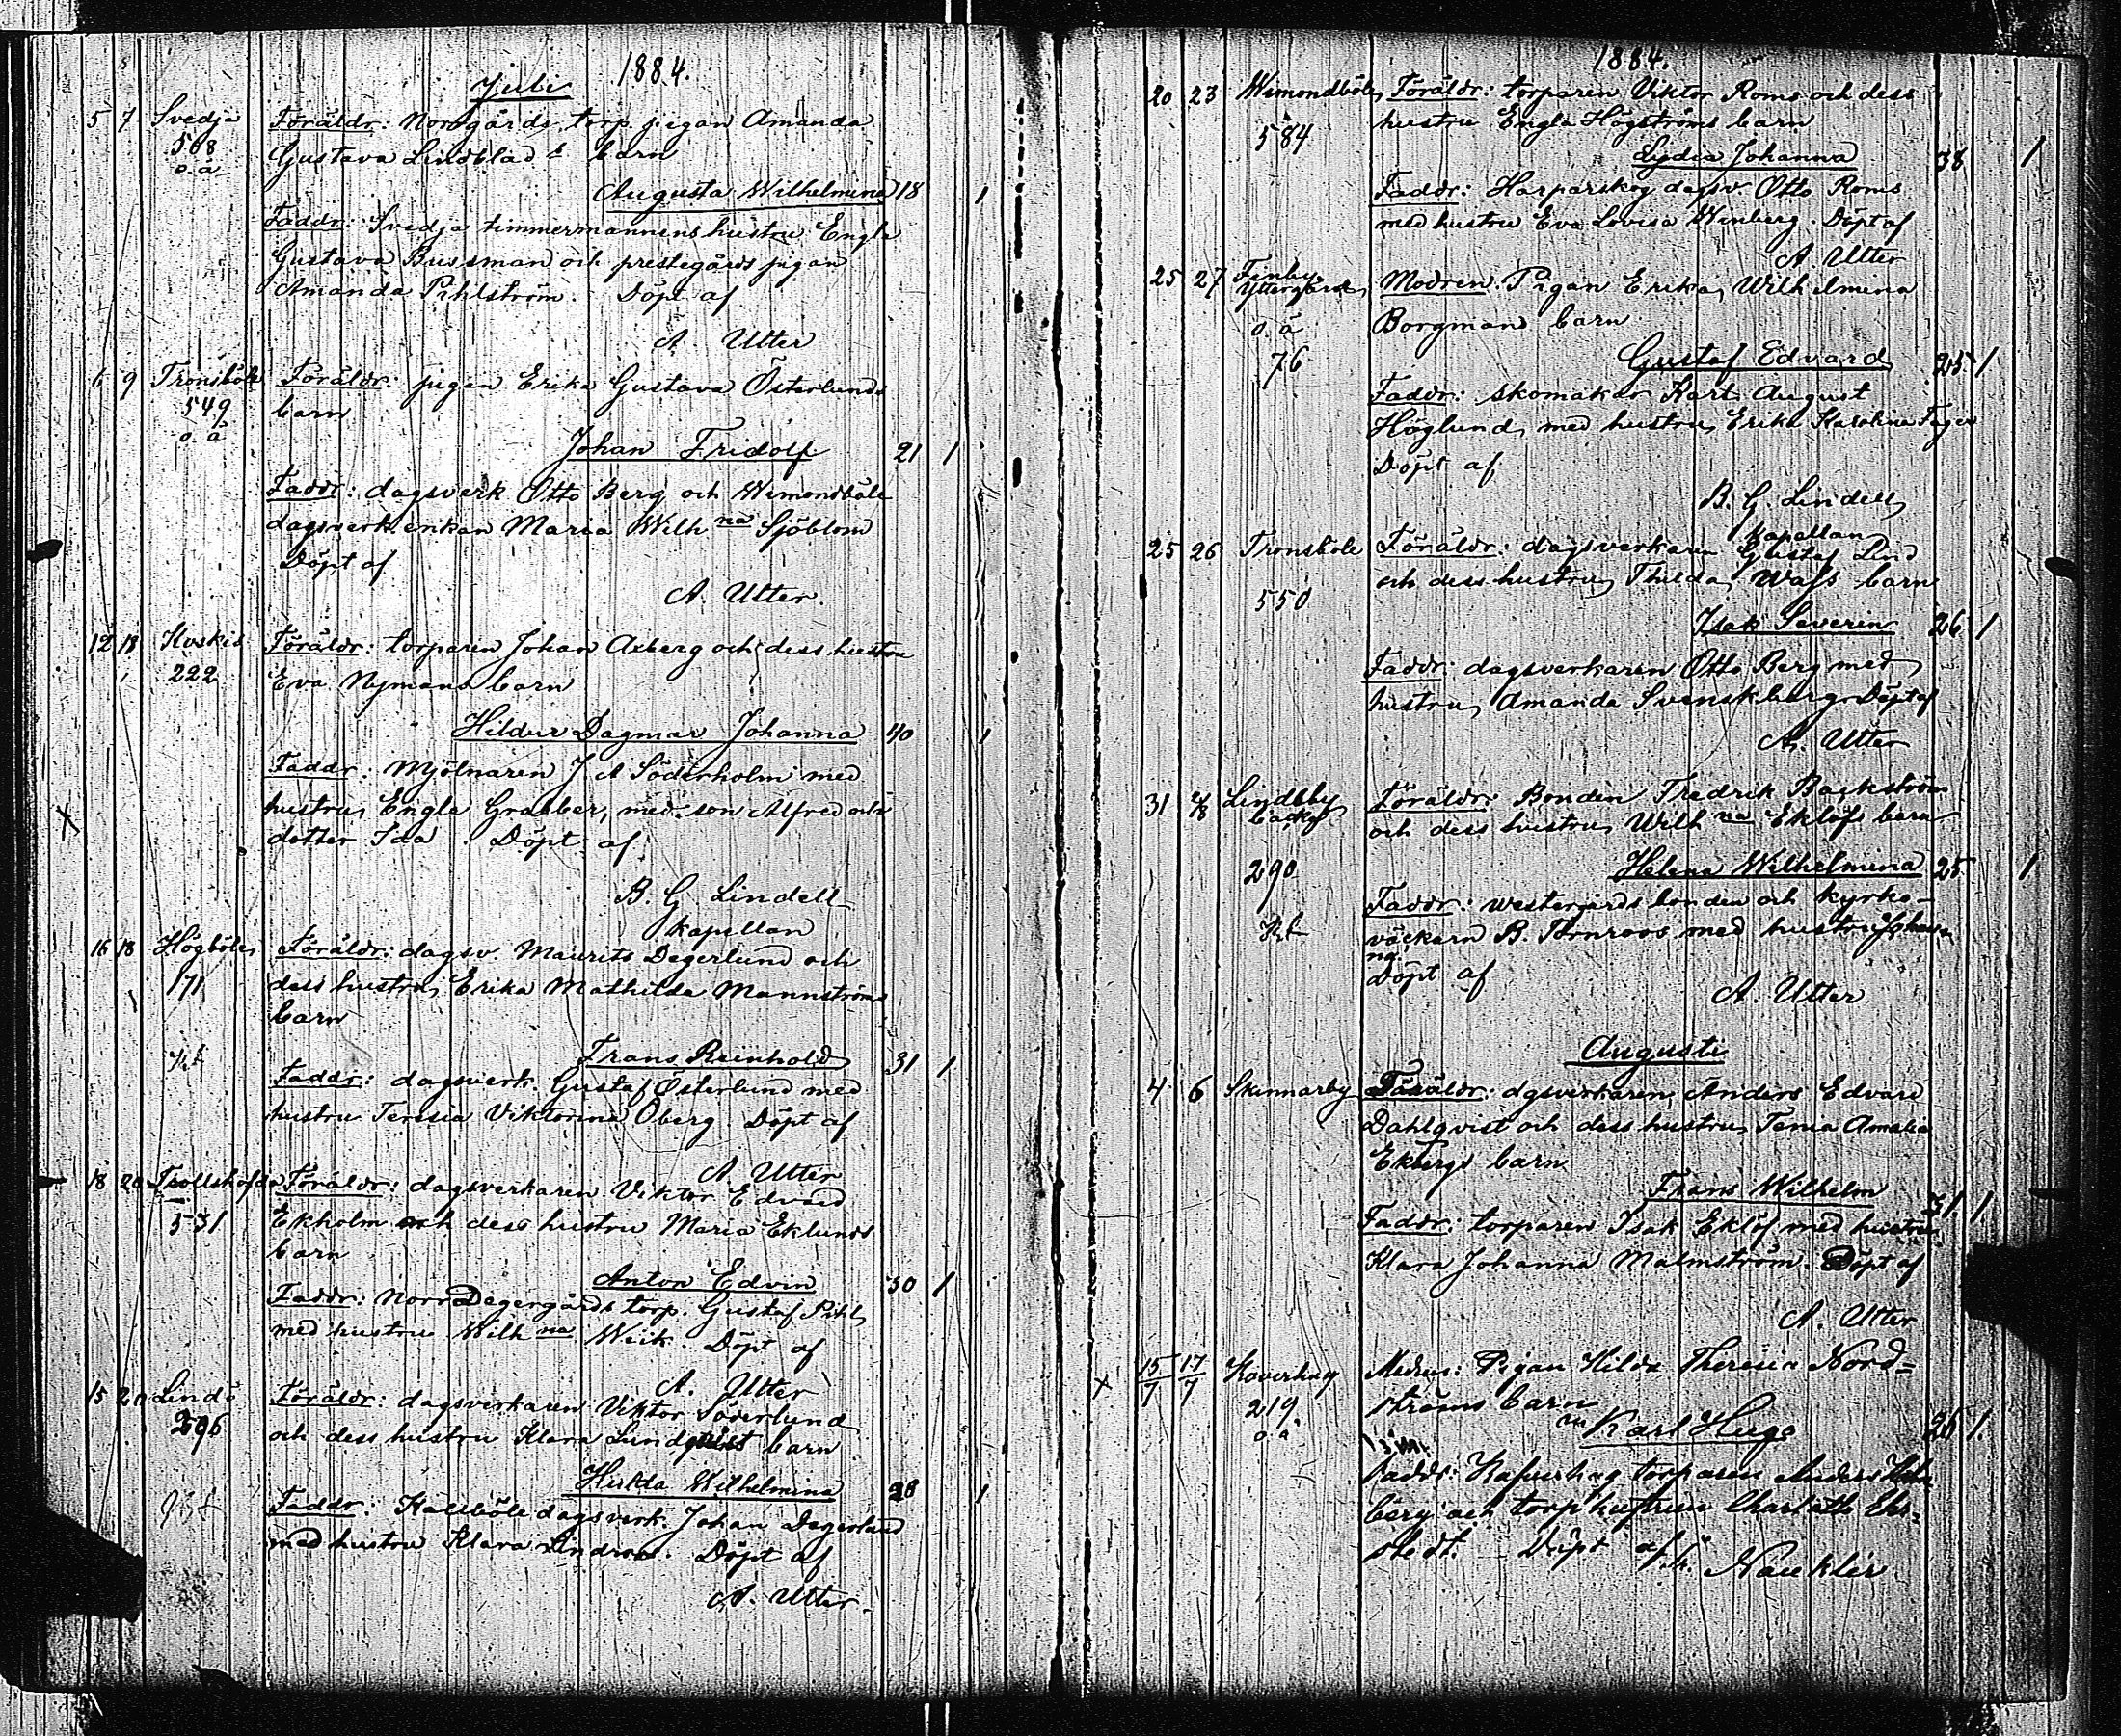 1884.
Juli
5 7 Svedja Föräldr: Norrgårds torp. pigan Amanda
508 Gustava Lindblad s barn
o.ä
Augusta Wilhelmina 18 1
Faddr: Svedja timmermannens hustru Engla
Gustava Bussman och prestegårds pigan
Amanda Pihlström. Döpt af
A. Utter
6 9 Tronsböle Föräldr: pigan Erika Gustava Österlunds
549 barn
o.ä
Johan Fridolf 21 1
Faddr: dagsverk Otto Berg och Wimondböle
dagsverk. enkan Maria Wilh na Sjöblom
Döpt af
A. Utter.
12 18 Koskis Föräldr: torparen Johan Axberg och dess hustru
222 Eva Nymans barn
Hildur Dagmar Johanna 40 1
Faddr: Mjölnaren J A Söderholm med
hustru Engla Grabber, med son Alfred och
dotter Ida. Döpt af
B. G. Lindell
kapellan
16 18 Högböle Föräldr: dagsv. Maurits Degerlund och
171 dess hustru Erika Mathilda Mannströms
barn
Frans Reinhold 31 1
Faddr: dagsverk. Gustaf Österlund med
hustru Teresia Viktorina Öberg. Döpt af
A. Utter
18 20 Trollshofda Föräldr: dagsverkaren Viktor Edvard
531 Ekholm och dess hustru Maria Eklunds
barn
Anton Edvin 30 1
Faddr: Norr Degergårds torp. Gustaf Pihl
med hustru Wilh na Weik. Döpt af
A. Utter
15 20 Lindö Föräldr: dagsverkaren Viktor Söderlund
296 och dess hustru Klara Lundqvist barn
Hulda Wilhelmina 28 1
Faddr: Kallböle dagsverk. Johan Degerlund
med hustru Klara Lindroos. Döpt af
A. Utter.
1884.
20 23 Wimondböle Föräldr: torparen Viktor Roms och dess
584 hustru Engla Högströms barn
Lydia Johanna 38 1
Faddr: Harparskog dagsv Otto Roms
med hustru Eva Lovisa Winberg. Döpt af
A Utter
25 27 Finby Yttergård Modren: Pigan Erika Wilhelmina
o. ä Borgmans barn
76 Gustaf Edvard 25 1
Faddr: skomakar Karl August
Höglund med hustru Erika Karolina Fager
Döpt af
B. G. Lindell
kapellan
25 26 Tronsböle Föräldr: dagsverkaren Gustaf Lind
550 och dess hustru Thilda Wass barn
Isak Severin 26 1
Faddr: dagsverkaren Otto Berg med
hustru Amanda Svenskberg. Döpt af
A. Utter
31 Lindeby Föräldr: Bonden Fredrik Backström
och dess hustru Wilh na Eklöfs barn
290 Helena Wilhelmina 25 1
Faddr: Westergårds bonden och kyrko-
väckarn B. Törnroos med hustru Johan
na
Döpt af
A. Utter
Augusti
4 6 Skinnarby Föräldr: dgsverkaren Anders Edvard
Dahlqvist och dess hustru Tenia Amalia
Ekbergs barn
Frans Wilhelm 31 1
Faddr: torparen Isak Eklöf med hustru
Klara Johanna Malmström. Döpt af
A. Utter
x 15/7 17/7 Koverhag Pigan Hilda Theresia Nord=
219 ströms barn
o ä Karl Hugo 26 1
Faddr: torparen Anders
berg och torp hustrun
stedt. Döpt af Nauklér